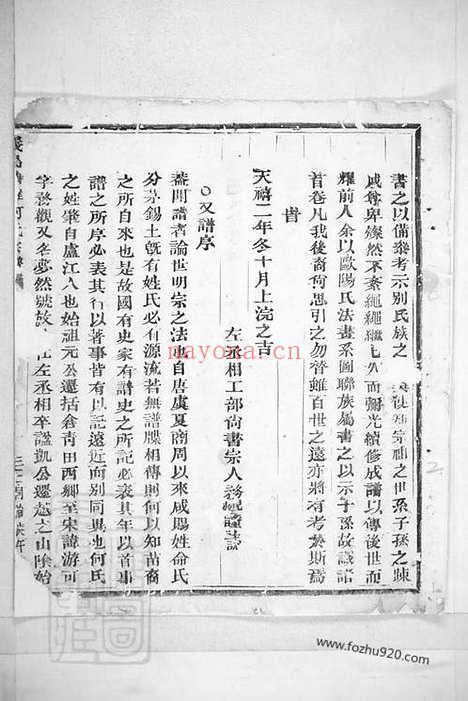 書之以備叅考示別氏族之 知宗祖之世系子孫之疎
戚尊卑燦然不紊繩繩 先而彌光續修成譜以傳後世而
耀前人余以歐陽氏法畫系圖聯族屬書之以示子孫故議諸
首卷凡我後裔尚思引之勿替雖百世之遠亦將有考於斯焉
旹
天禧二年冬十月上浣之吉
左丞相工部尚書宗人 謹記
○又譜序
蓋聞譜者論世明宗之法也自唐虞夏商周以來咸賜姓命氏
分茅錫土旣有姓氏必有源流若無譜牒相傳則何以知苗裔
之所自來也是故國有史家有譜史之所記必表其年以首事
譜之所序必表其行以著事皆有以記遠近而別同異也何氏
之姓肇自廬江人也始祖元公遷括倉靑田西鄉至宋諱游可
字 觀又名夢然號故 仕左丞相卒謚凱公遷越之山陰始
www.fozhu920.com
nayona.cn